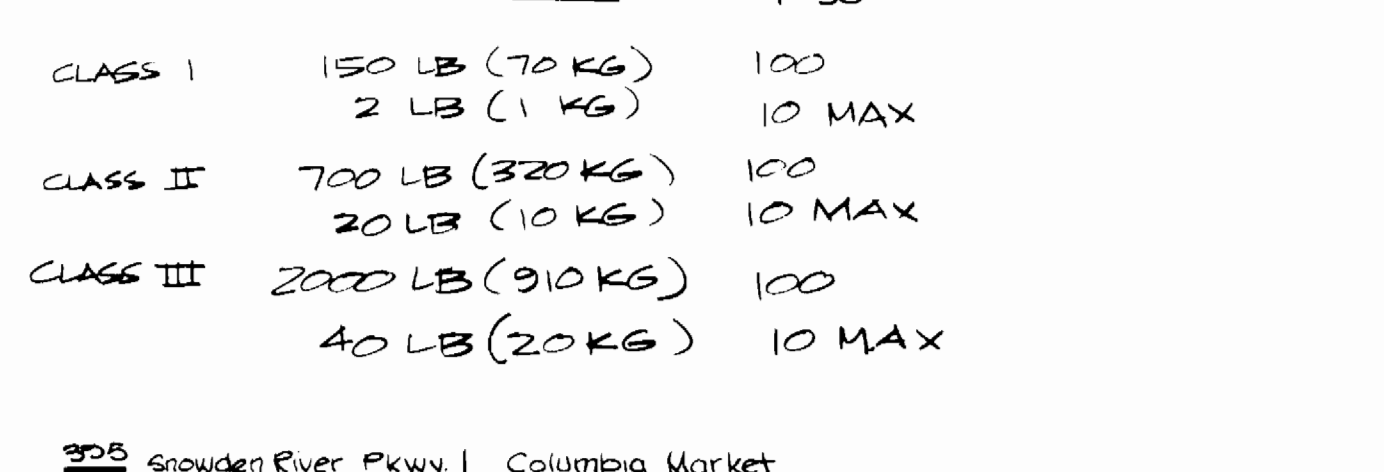 CLASS I 150 LB (70 KG) 100
2 LB (1 KG) 10 MAX
CLASS II 700 LB (320 KG) 100
20 LB (10 KG) 10 MAX
CLASS III 2000 LB (910 KG) 100
40 LB (20 KG) 10 MAX
Snowden River Pkwy. | Columbia Market